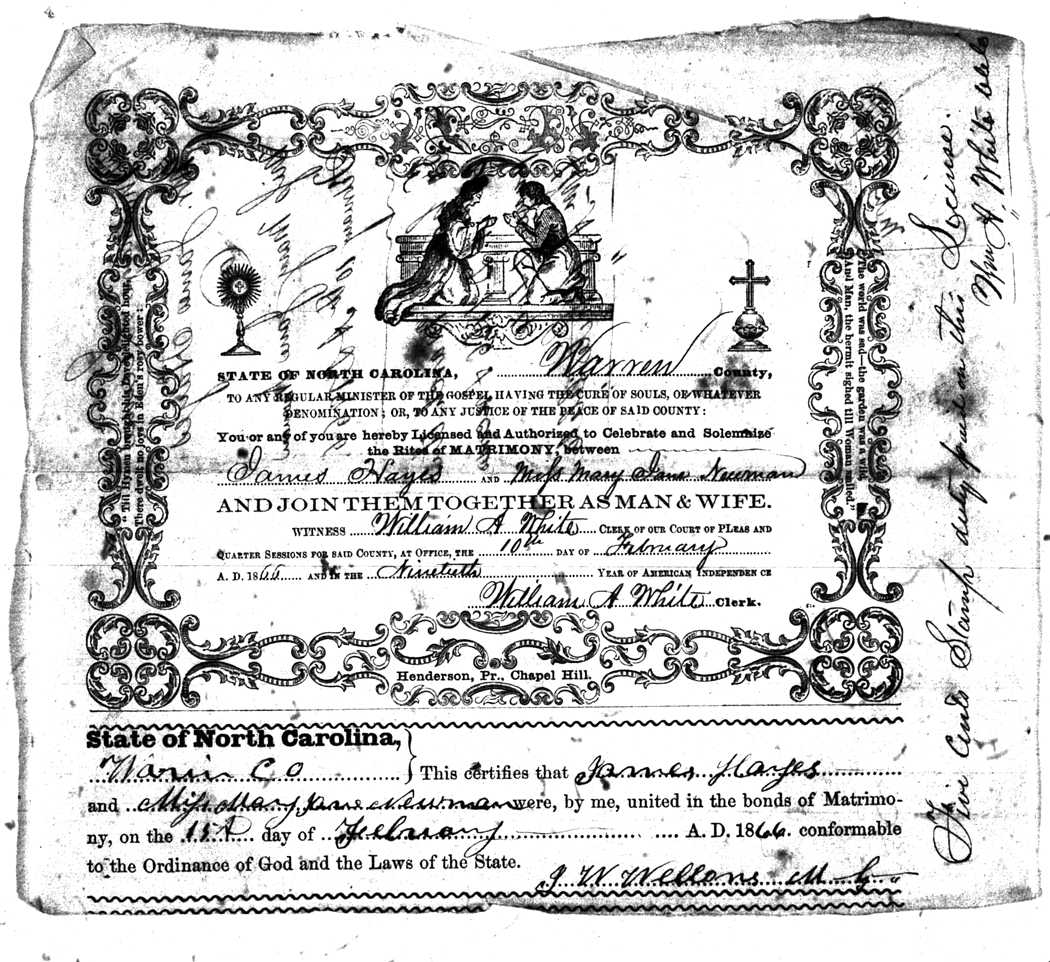 STATE OF NORTH CAROLINA, Warren County,
TO ANY REGULAR MINISTER OF THE GOSPEL HAVING THE CURE OF SOULS, OF WHATEVER
DENOMINATION; OR, TO ANY JUSTICE OF THE PEACE OF SAID COUNTY:
You or any of you are hereby Licensed and Authorized to Celebrate and Solemnize
the Rites of MATRIMONY, between
James Hayes AND Miss Mary Jane Newman
AND JOIN THEM TOGETHER AS MAN & WIFE.
WITNESS William A White CLERK OF OUR COURT OF PLEAS AND
QUARTER SESSIONS FOR SAID COUNTY, AT OFFICE, THE 10th DAY OF February
A. D. 1866 AND IN THE Ninetieth YEAR OF AMERICAN INDEPENDENCE
William A White Clerk.
Henderson, Pr., Chapel Hill.
"Till Hymen brought his love-delighted hour,
There dwelt no joy in Eden's rosy bower:
The world was sad—the garden was a wild,
And Man, the hermit sighed till Woman smiled."
Five Cents Stamp duty paid on this License.
Wm A. White Clk
State of North Carolina,
Warren Co This certifies that James Hayes
and Miss Mary Jane Newman were, by me, united in the bonds of Matrimo-
ny, on the day of February A. D. 1866. conformable
to the Ordinance of God and the Laws of the State.
J W Wellons M G